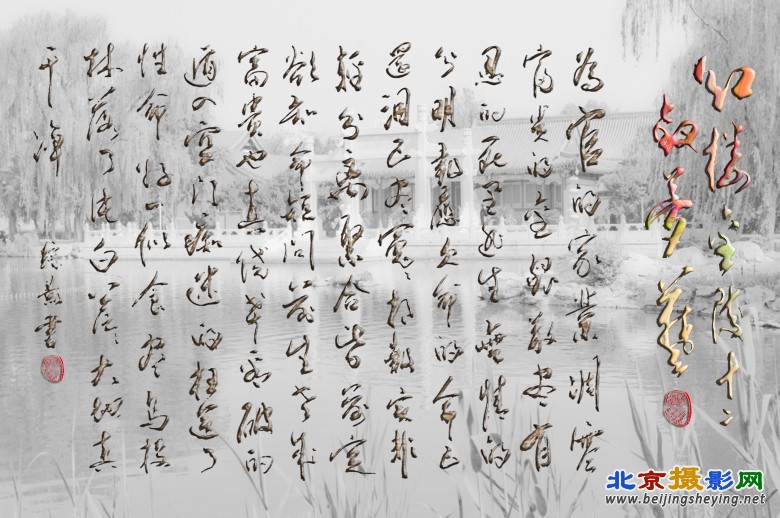 為官的家業凋零
富貴的金銀散尽有
恩的死里逃生無情的
分明報應欠命的命已
還泪已尽冤冤相報实非
輕分離聚合皆前定
欲知命短问前生老来
富貴也真僥幸看破的
遁入空门痴迷的枉送了
性命好一似食尽鸟投
林落了片白茫茫大地真
干净
北京摄影网
www.beijingsheying.net